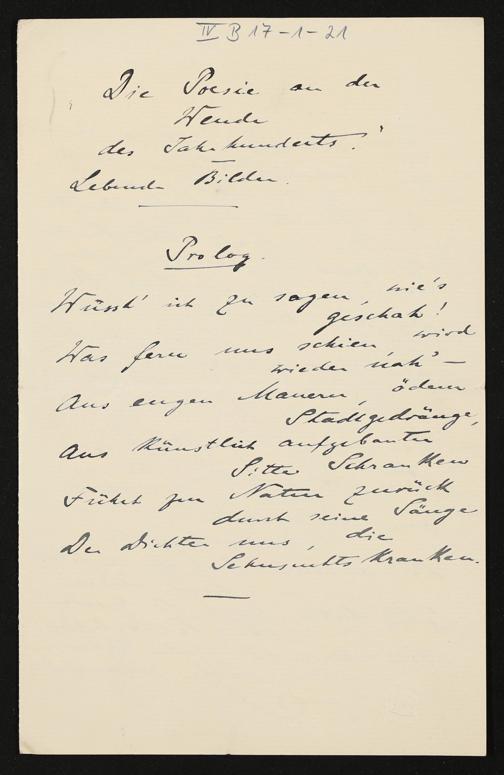 IV B 17-1-21
„Die Poesie an der
Wende
des Jahrhunderts."
Lebende Bilder.
Prolog.
Wüsst' ich zu sagen, wie's
geschah!
Was fern uns schien, wird
wieder nah' –
Aus engen Mauern, ödem
Stadtgedränge,
Aus künstlich aufgebauten
Sitte Schranken
Führt zur Natur zurück
durch seine Sänge
Der Dichter uns, die
Sehnsuchtskranken.